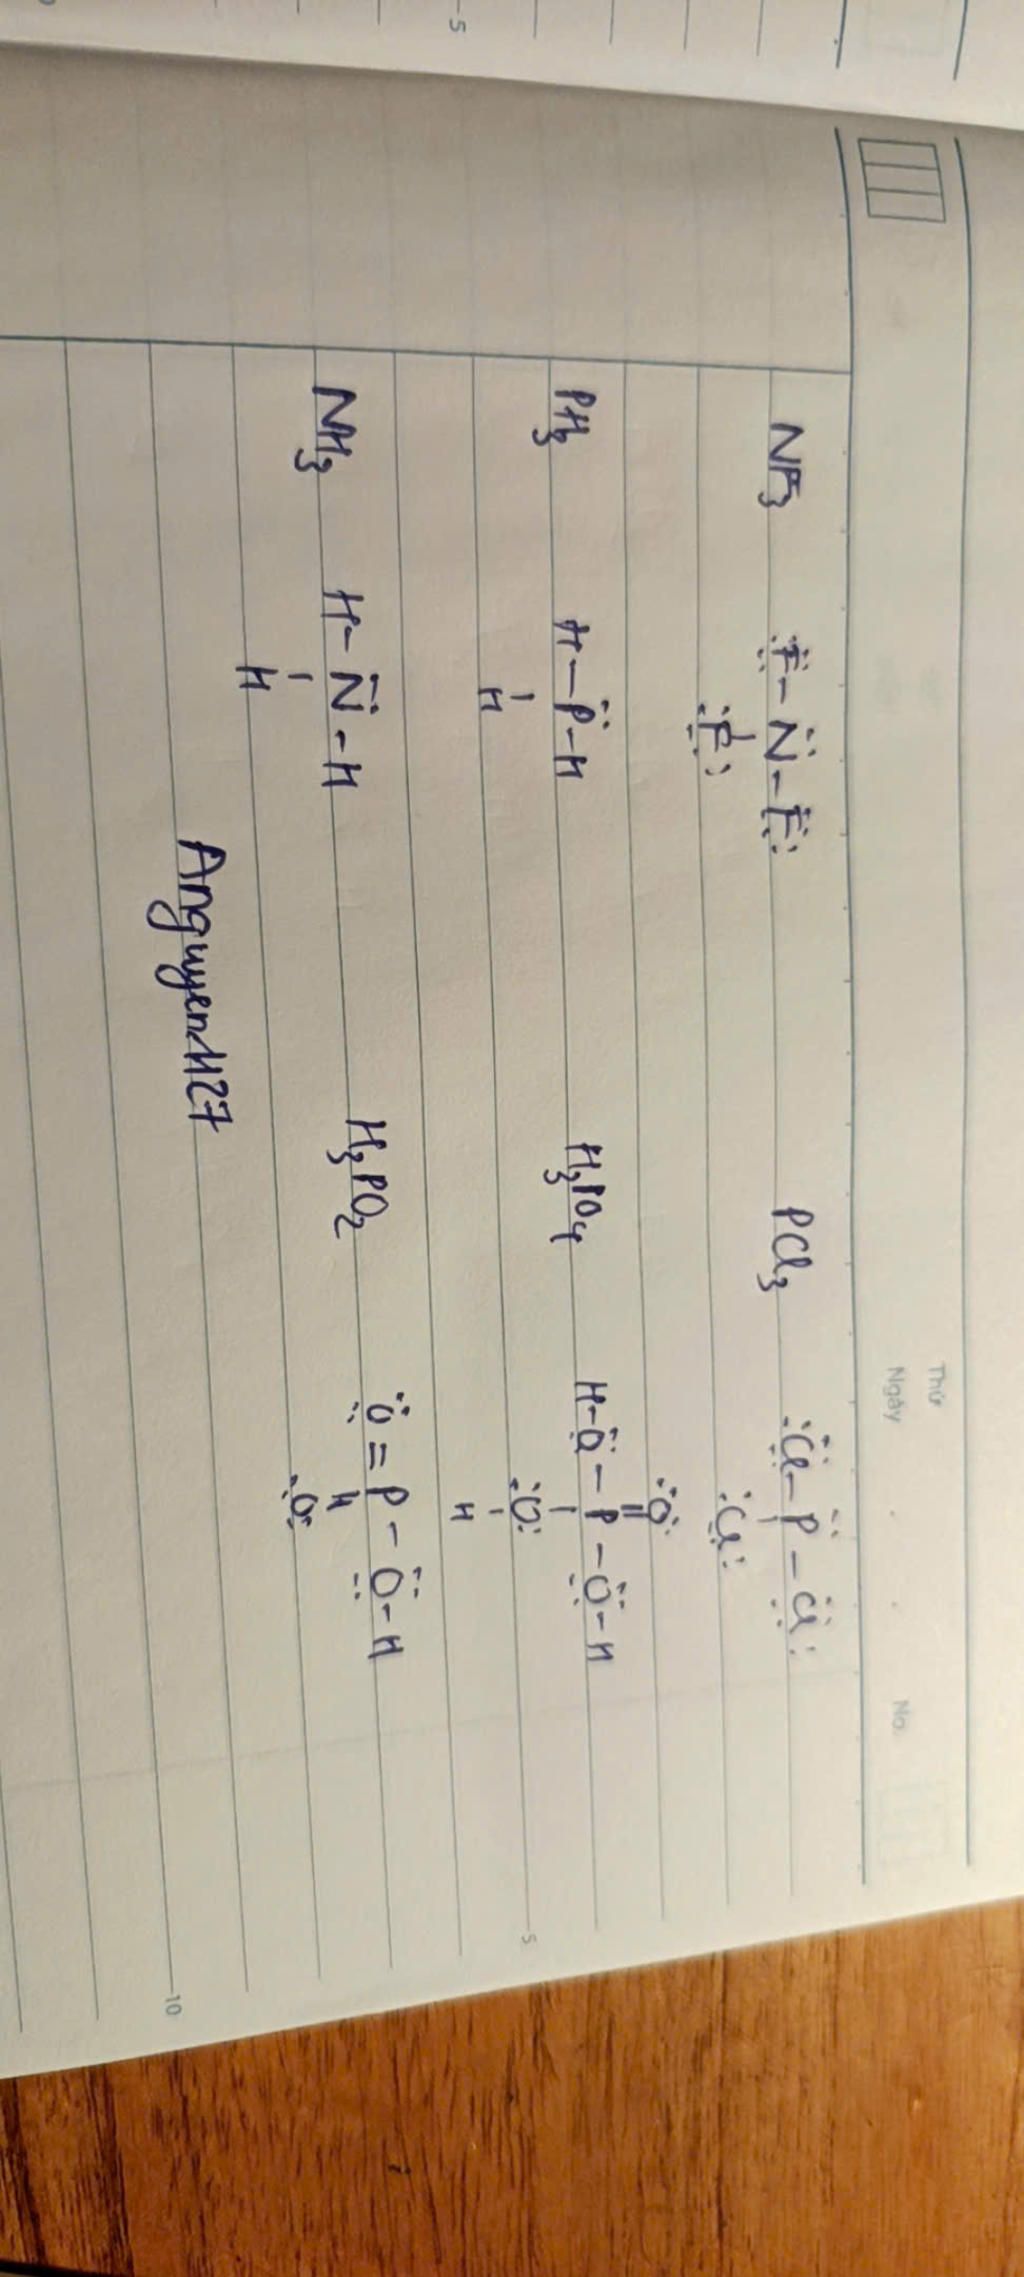 Thứ
Ngày . . No.
NF₃ :F̤̈ – N̈ – F̤̈: PCl₃ :C̤̈l – P̈ – C̤̈l:
|
:F̤: :C̤l:
:O:
||
PH₃ H – P̈ – H H₃PO₄ H – Ö̤ – P – Ö̤ – H
| |
H :O:
|
H
NH₃ H – N̈ – H H₃PO₂ Ö̤ = P – Ö̤ – H
| H
H :O:
Anguyen1127
5
10
5